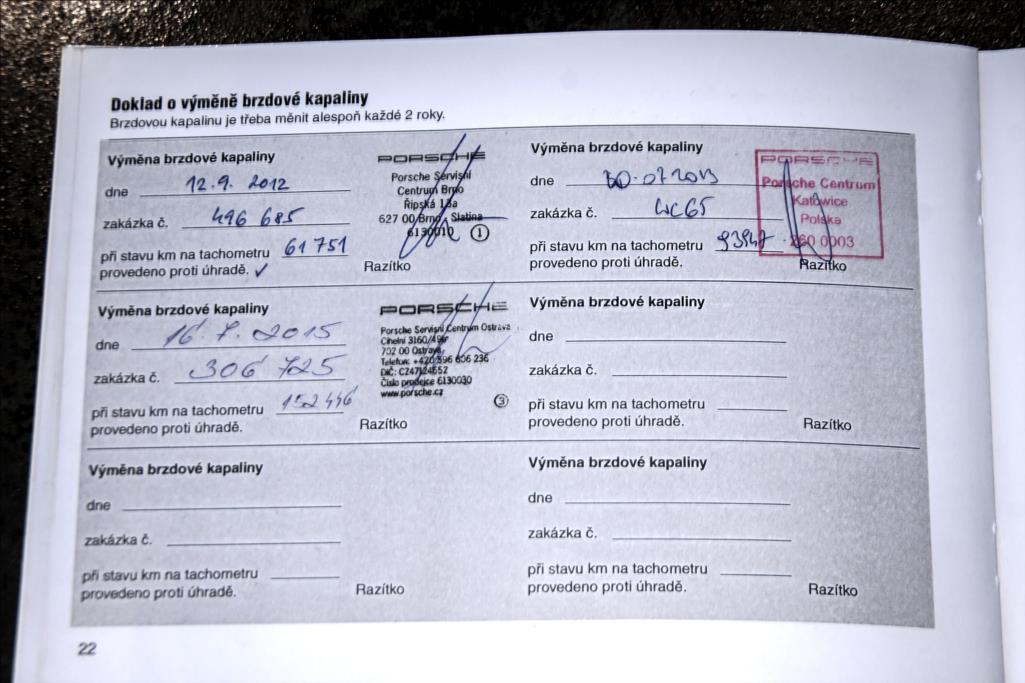 Doklad o výměně brzdové kapaliny
Brzdovou kapalinu je třeba měnit alespoň každé 2 roky.
Výměna brzdové kapaliny
dne 12.9. 2012
zakázka č. 496 685
při stavu km na tachometru 61 751
provedeno proti úhradě. ✓
Razítko
PORSCHE
Porsche Servisní
Centrum Brno
Řipská 13a
627 00 Brno, Slatina
6130010 1
Výměna brzdové kapaliny
dne 30.07.2013
zakázka č. WC65
při stavu km na tachometru 93947
provedeno proti úhradě.
Razítko
PORSCHE
Porsche Centrum
Katowice
Polska
260 0003
Výměna brzdové kapaliny
dne 16. 7. 2015
zakázka č. 306 725
při stavu km na tachometru 152 446
provedeno proti úhradě.
Razítko
PORSCHE
Porsche Servisní Centrum Ostrava
Cihelní 3160/49a
702 00 Ostrava
Telefon: +420 596 606 236
DIČ: CZ47124652
Číslo prodejce 6130030
www.porsche.cz
3
Výměna brzdové kapaliny
dne
zakázka č.
při stavu km na tachometru
provedeno proti úhradě.
Razítko
Výměna brzdové kapaliny
dne
zakázka č.
při stavu km na tachometru
provedeno proti úhradě.
Razítko
Výměna brzdové kapaliny
dne
zakázka č.
při stavu km na tachometru
provedeno proti úhradě.
Razítko
22